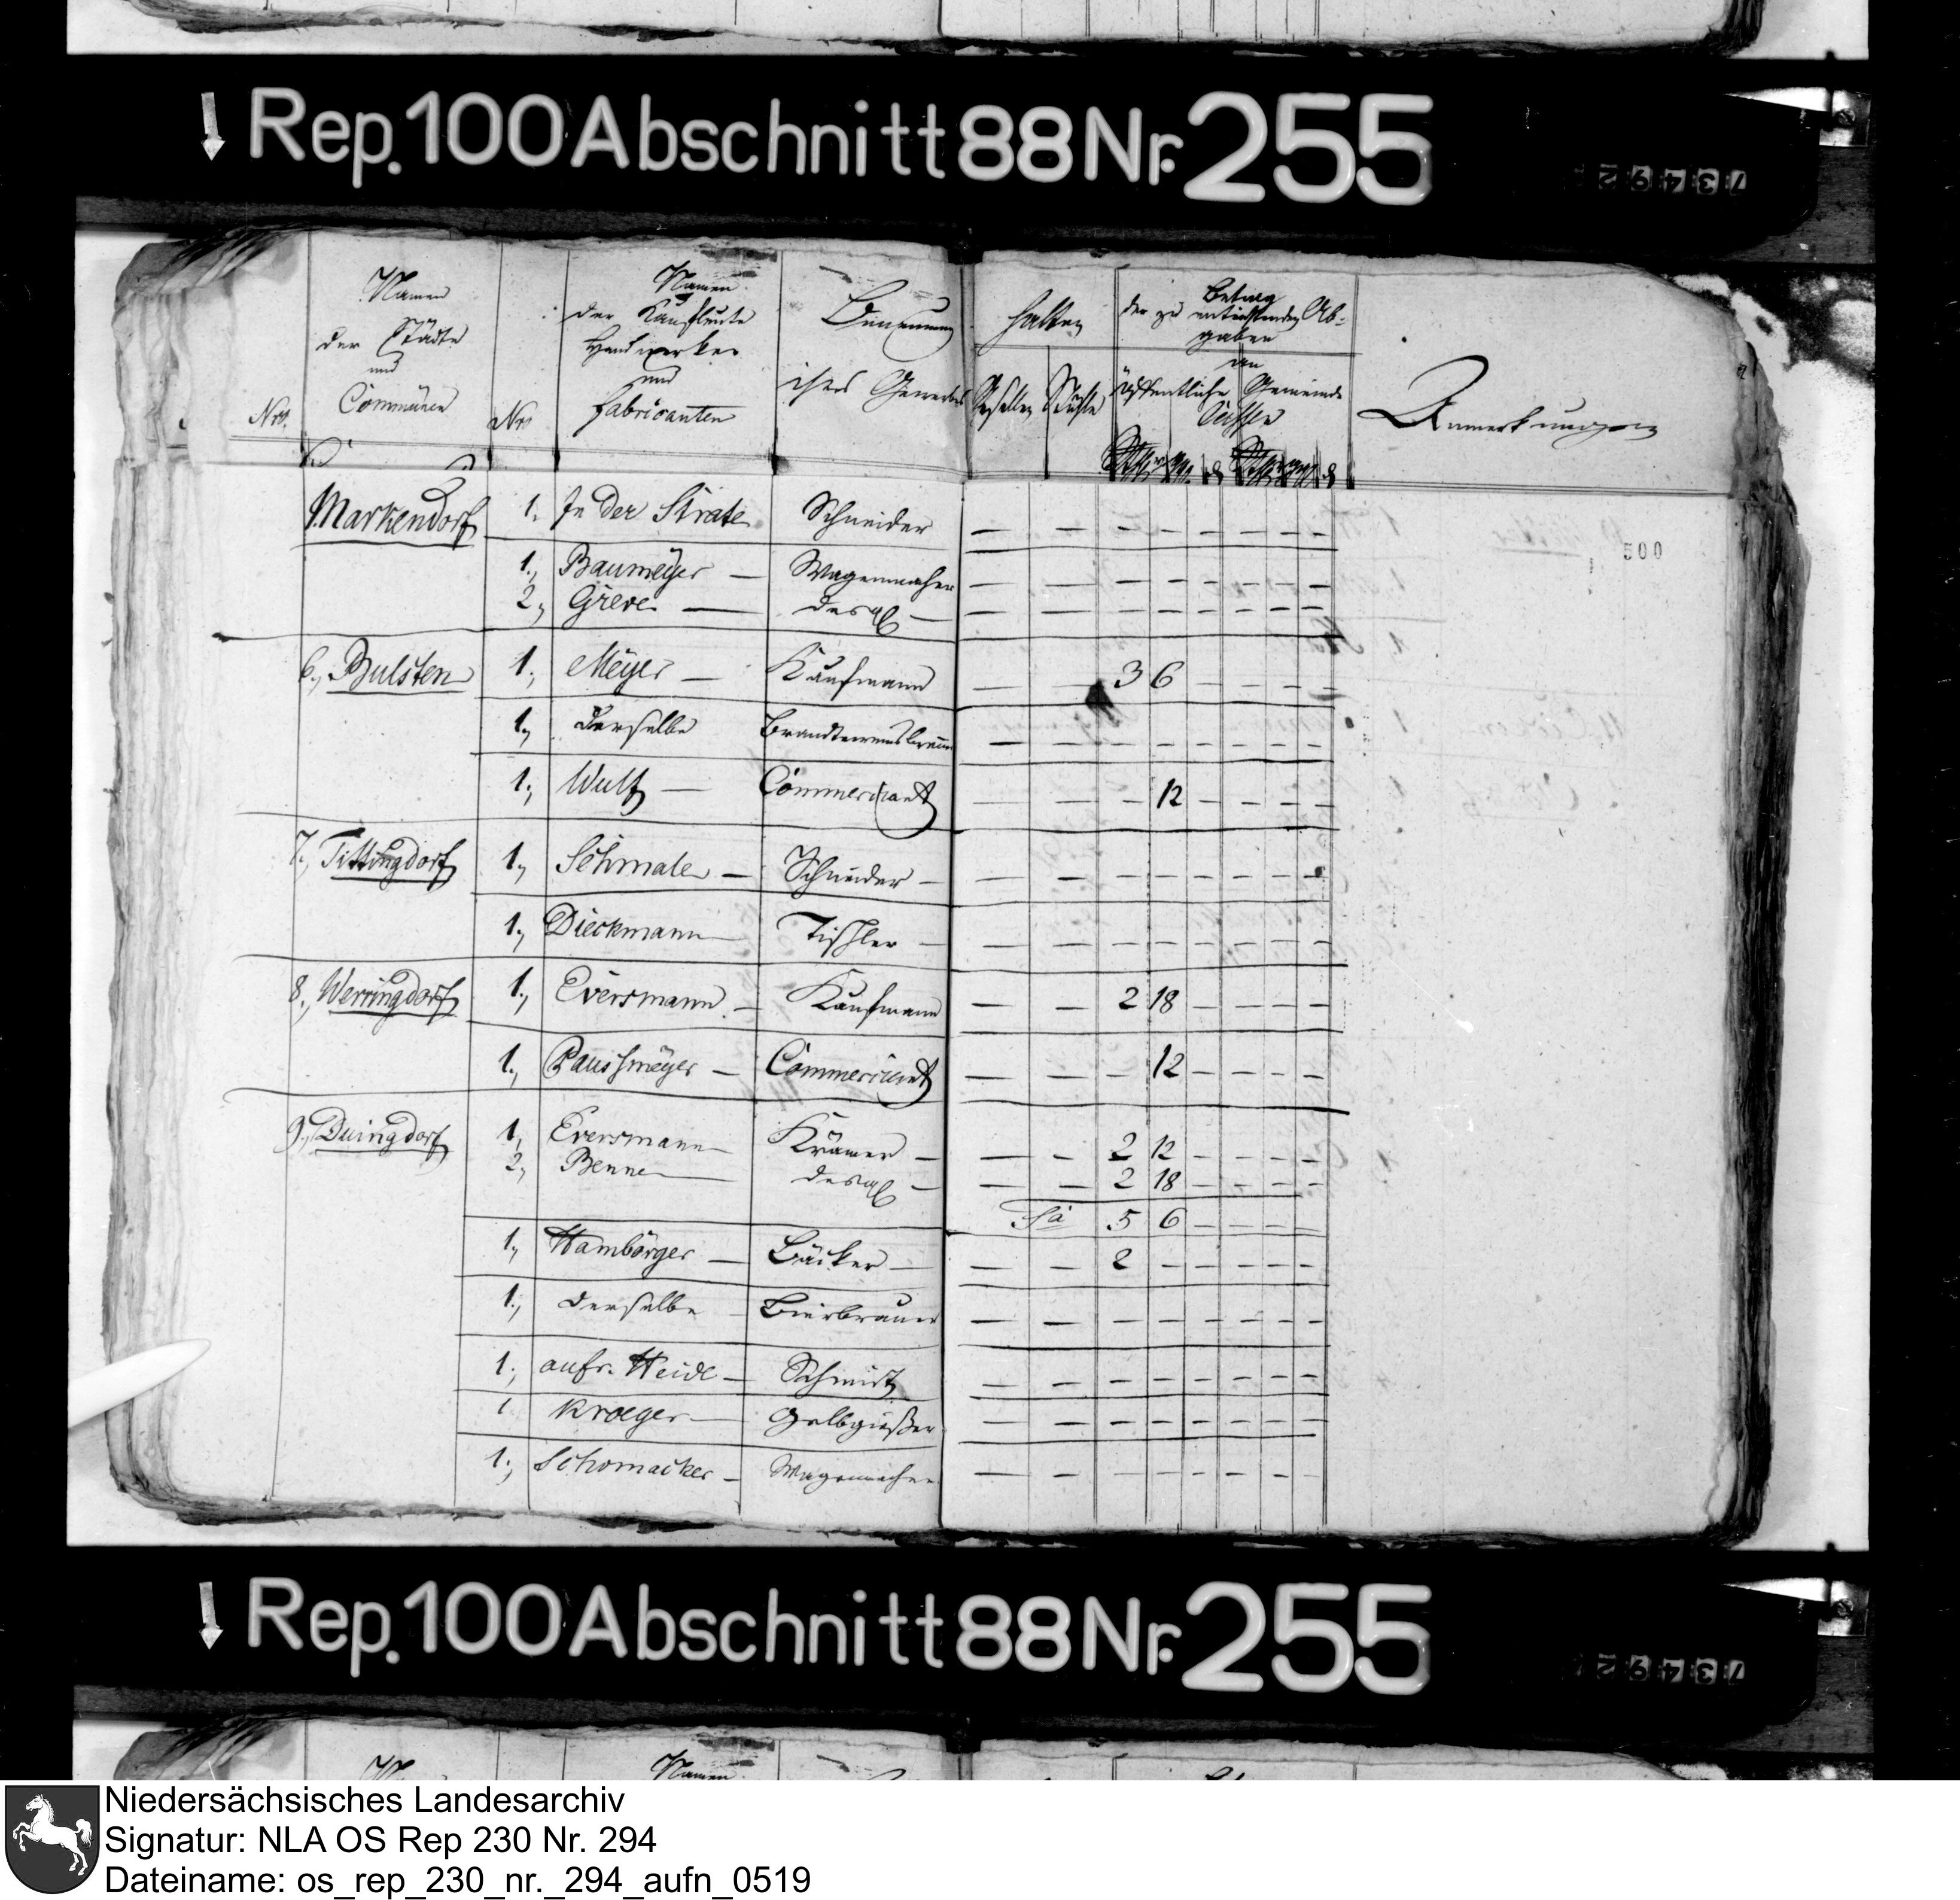 Rep. 100 Abschnitt 88 Nr. 255
73492
Nro.
Namen der Städte und Communen
Nro
Namen der Kaufleute Handwerker und Fabricanten
Benennung ihres Gewerbes
halten
Gesellen
Stühle
Betrag der zu entrichtenden Ab-gaben
an
öffentliche
Gemeinde
Cassen
Anmerkungen
500
Markendorf 1. In der Strate Schneider — — — — — — — — —
1., Baumeÿer — Wagenmacher — — — — — — — — —
2., Greve — desgl — — — — — — — — — —
6., Bulsten 1., Meÿer — Kaufmann — — 3 6 — — — — —
1., Derselbe Brandteweinsbrenn — — — — — — — — —
1., Wulf — Commerciant — — — 12 — — — — —
7., Tittingdorf 1., Schmale — Schneider — — — — — — — — — —
1., Dieckmann — Tischler — — — — — — — — — —
8., Werringdorf 1., Eversmann — Kaufmann — — 2 18 — — — — —
1., Paussmeÿer — Commerciant — — — 12 — — — — —
9., Duingdorf 1, Eversmann — Krämer — — — 2 12 — — — — —
2, Benne — desgl — — — 2 18 — — — — —
Sa 5 6 — — — — —
1, Hambörger — Bäcker — — — 2 — — — — — —
1., Derselbe — Bierbrauer — — — — — — — — —
1., aufr. Heide — Schmidt — — — — — — — — —
1 Kroeger — Gelbgießer — — — — — — — — —
1., Schomacker — Wagenmacher — — — — — — — — —
Rep. 100 Abschnitt 88 Nr. 255
73492
Namen
Niedersächsisches Landesarchiv
Signatur: NLA OS Rep 230 Nr. 294
Dateiname: os_rep_230_nr._294_aufn_0519